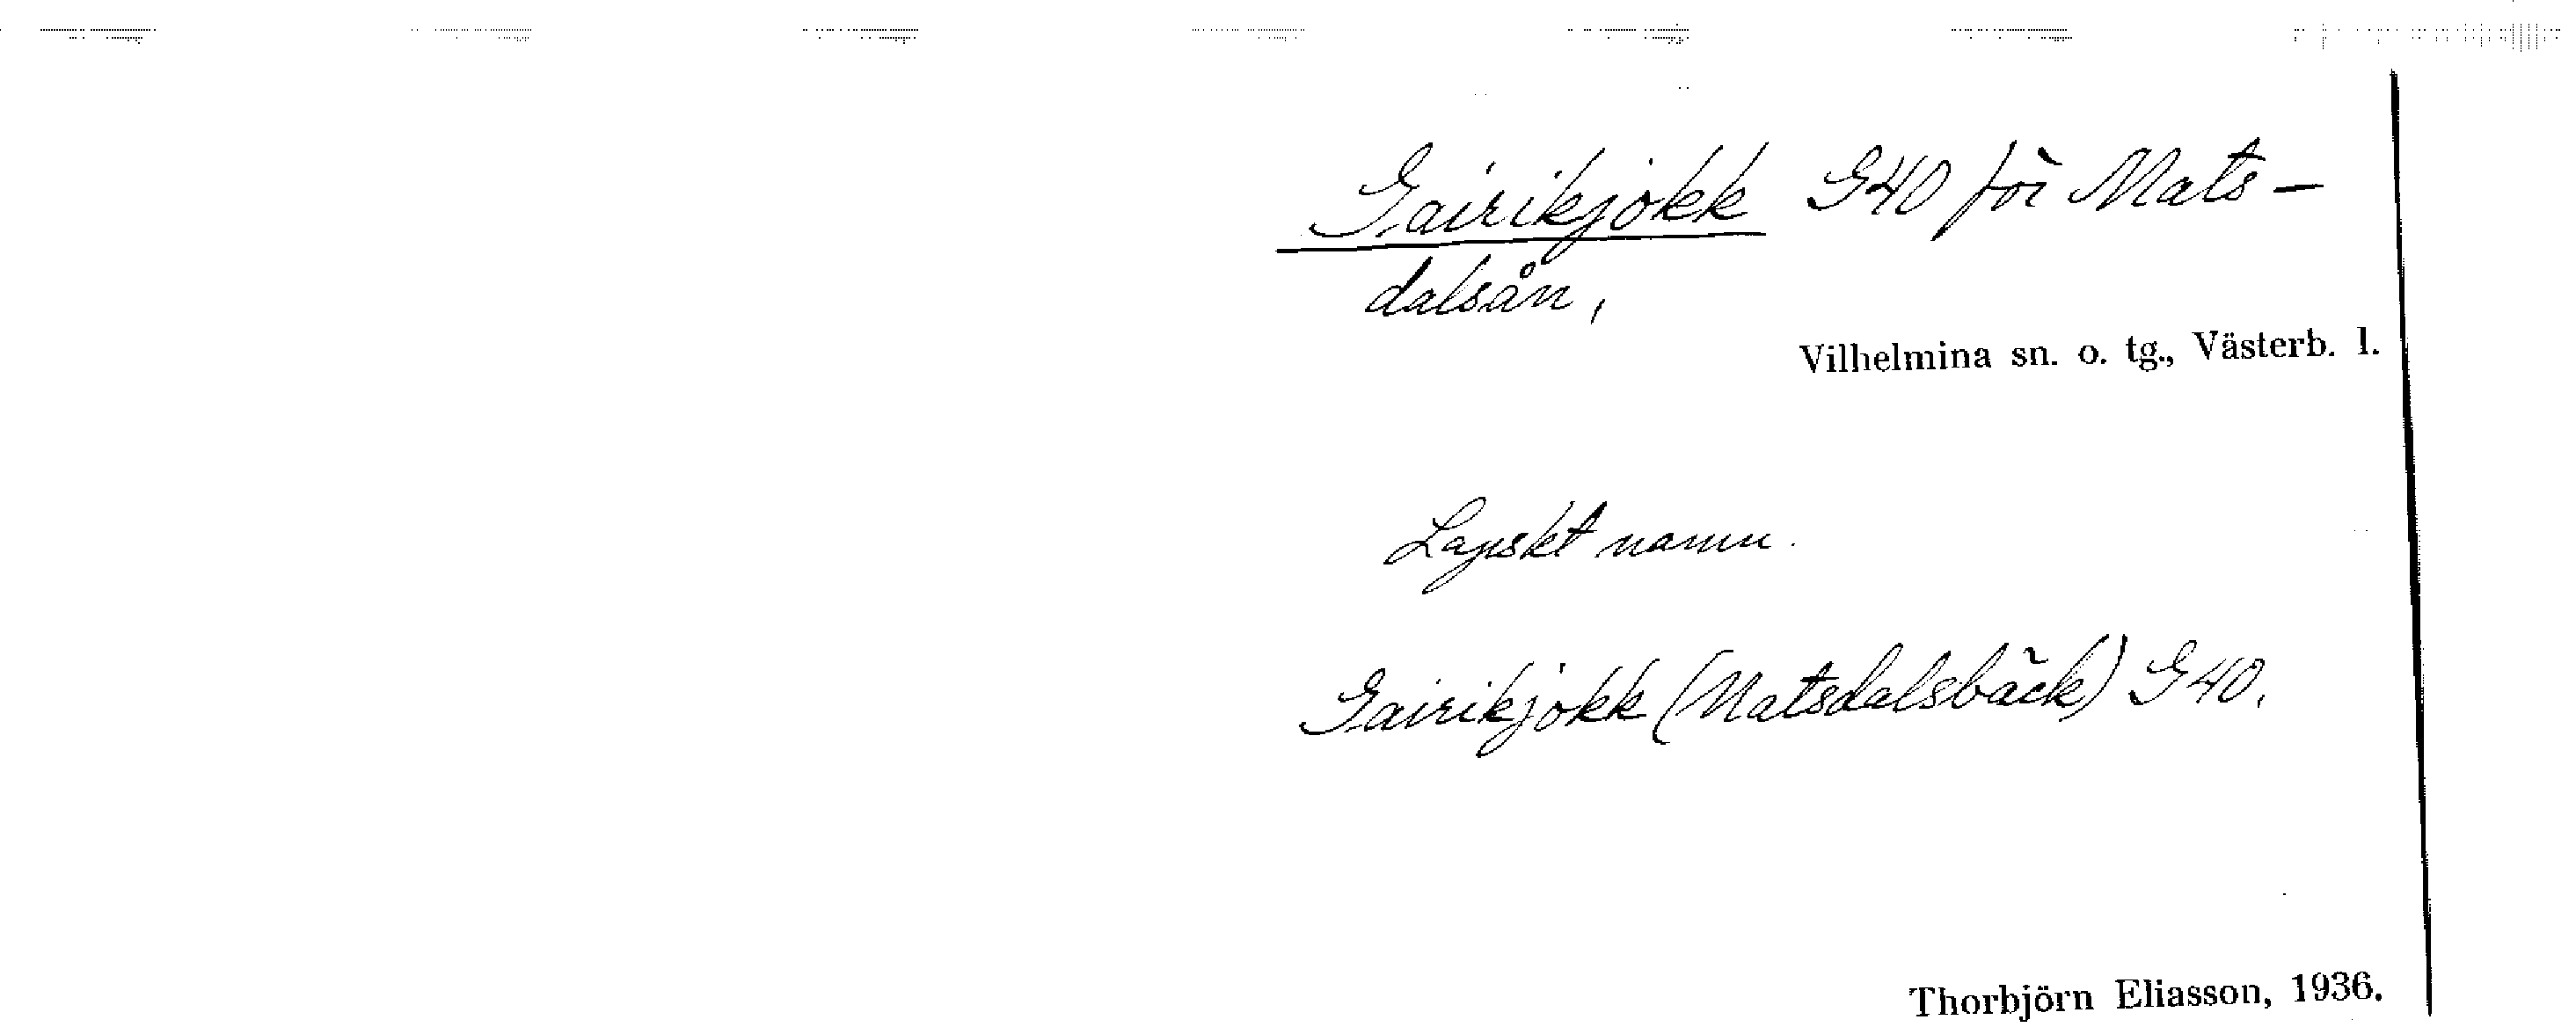 Gairikjokk G40 för Mats-
dalsån,
Vilhelmina sn. o. tg., Västerb. l.
Lapskt namn.
Gairikjokk (Matsdalsbäck) G40.
Thorbjörn Eliasson, 1936.